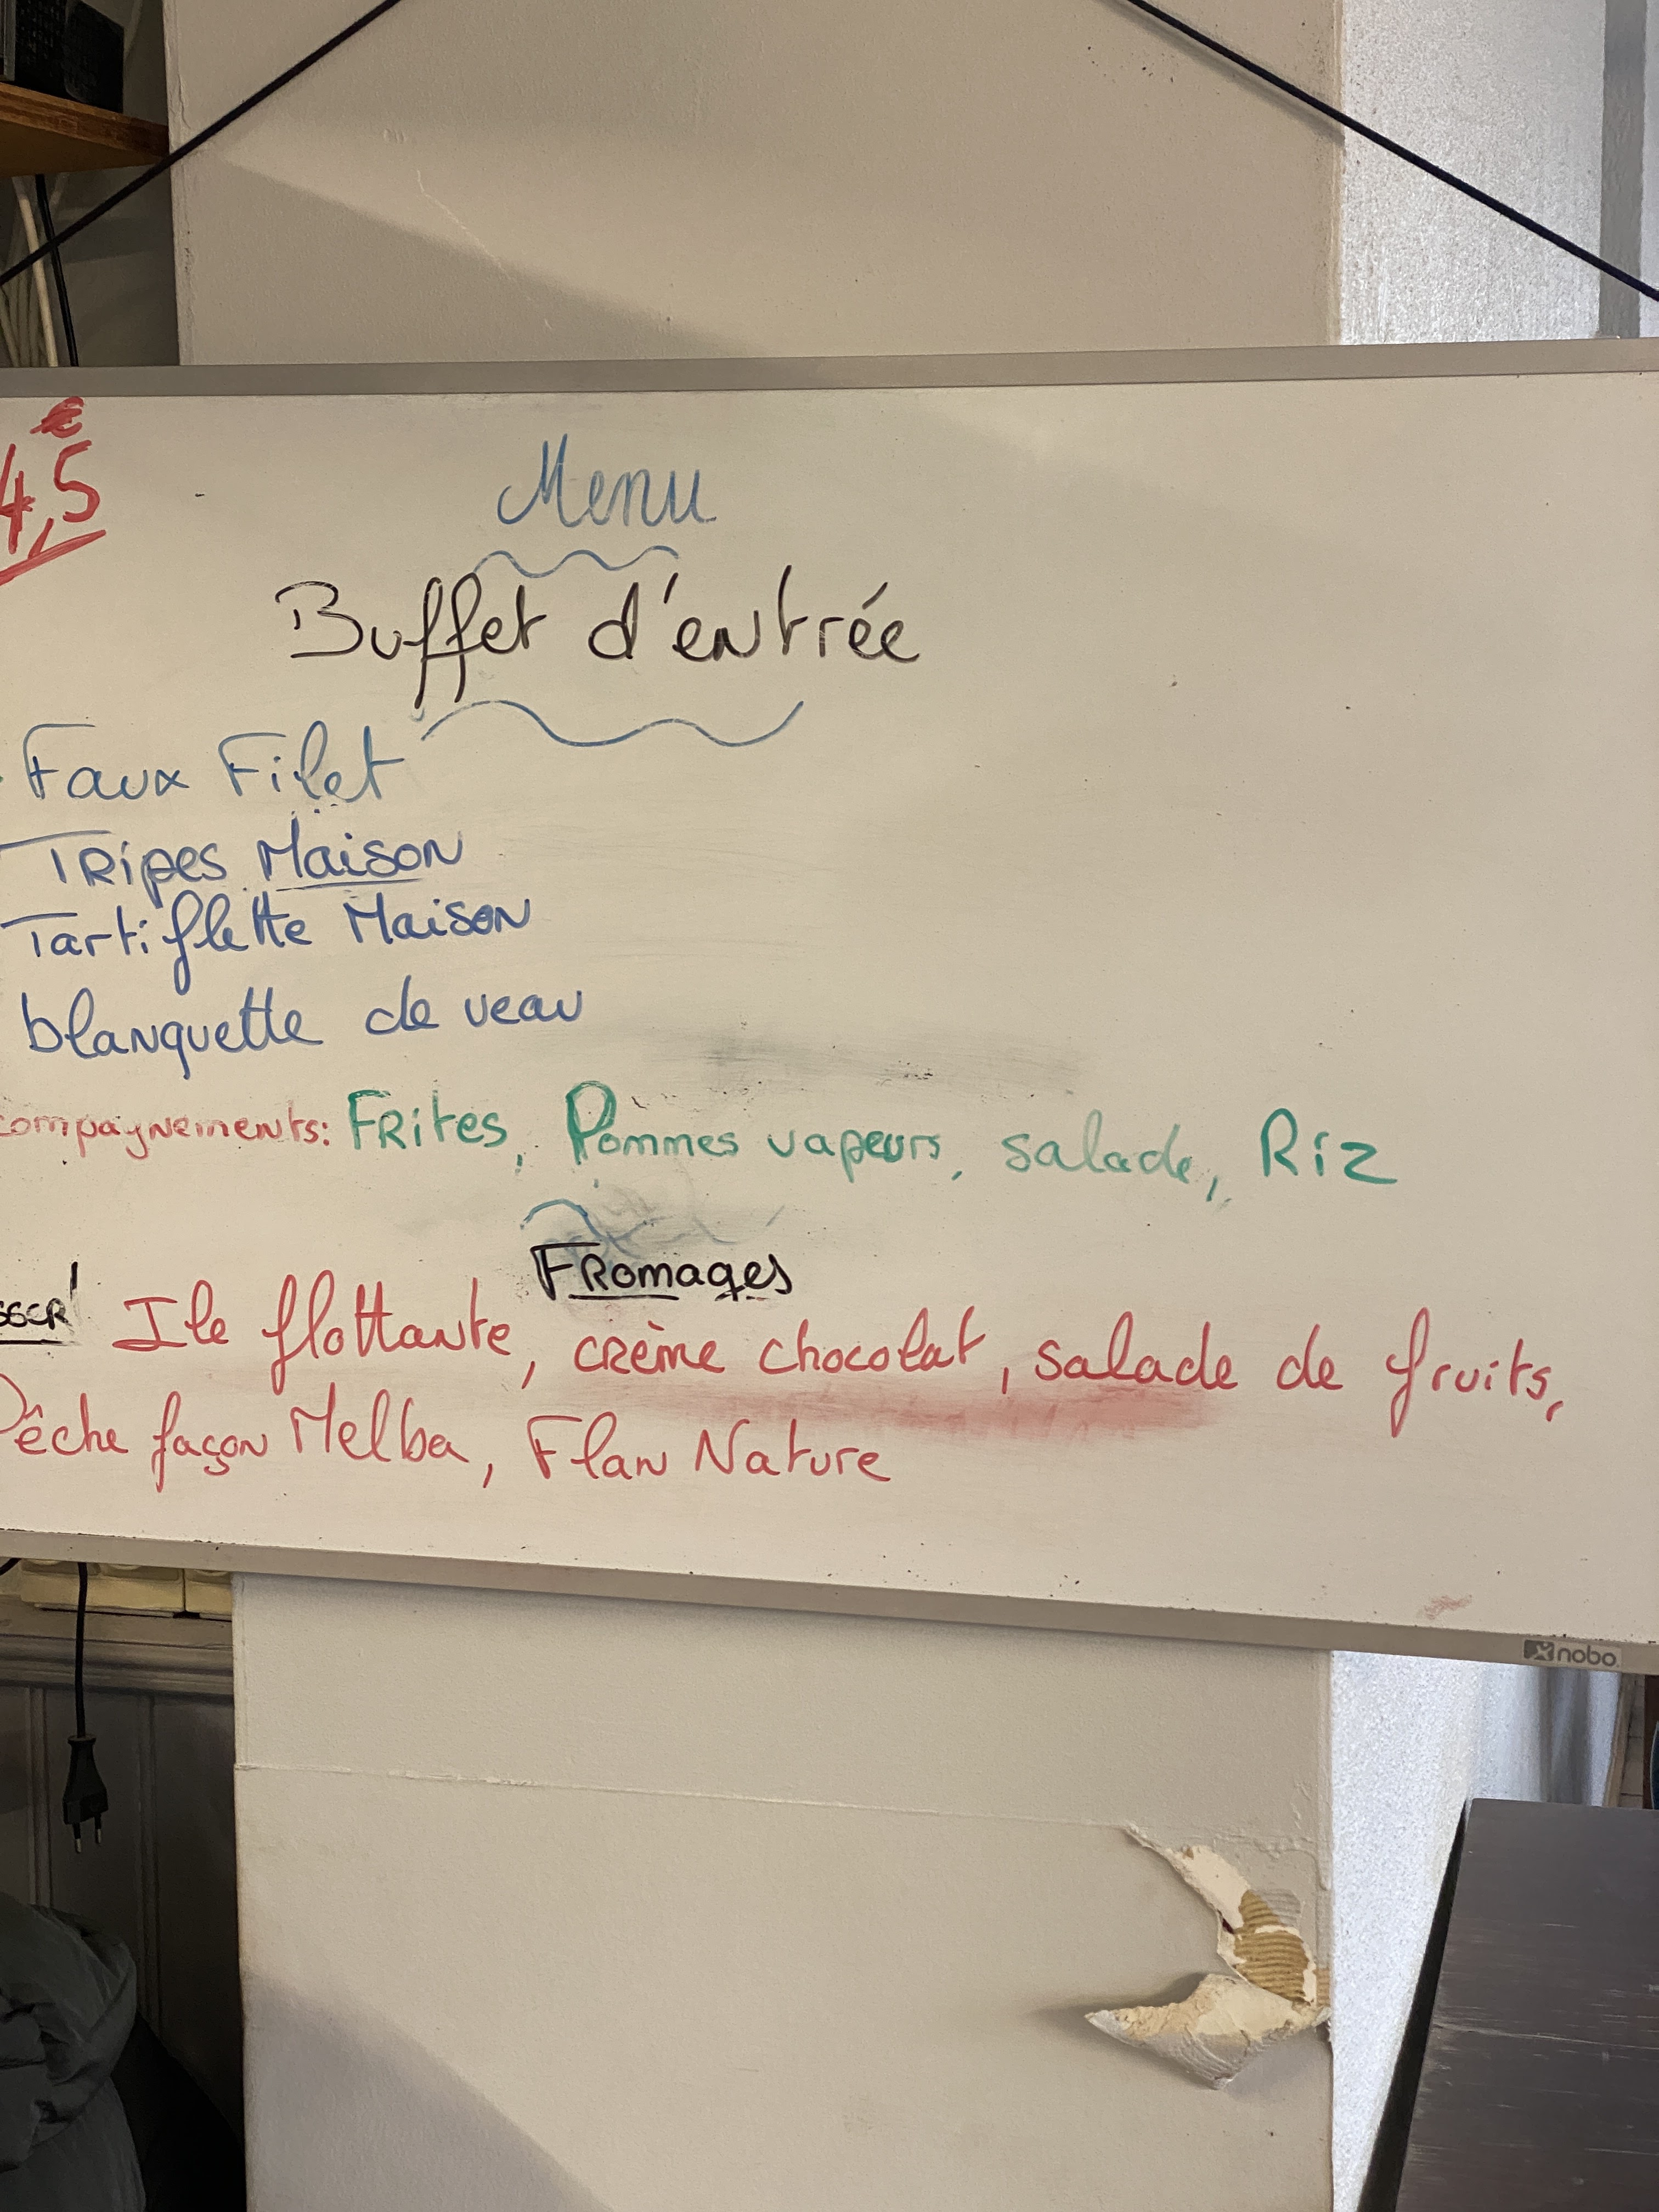 €
4,5
Menu
Buffet d'entrée
Faux Filet
Tripes Maison
Tartiflette Maison
blanquette de veau
compagnements: Frites, Pommes vapeurs, salade, Riz
Fromages
Ile flottante, crème chocolat, salade de fruits,
Pêche façon Melba, Flan Nature
nobo